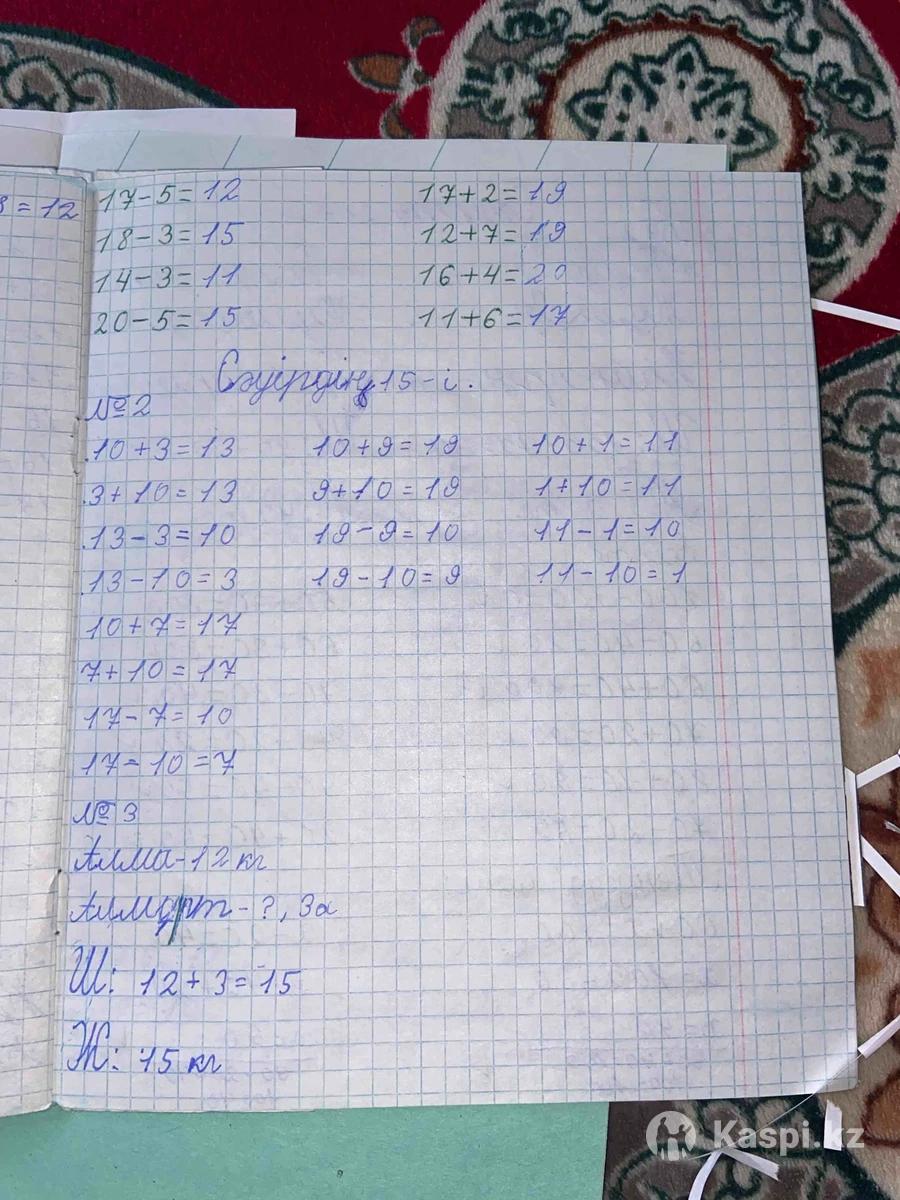 8=12
17-5=12 17+2=19
18-3=15 12+7=19
14-3=11 16+4=20
20-5=15 11+6=17
Сәуірдің 15-і.
№2
10+3=13 10+9=19 10+1=11
3+10=13 9+10=19 1+10=11
13-3=10 19-9=10 11-1=10
13-10=3 19-10=9 11-10=1
10+7=17
7+10=17
17-7=10
17-10=7
№3
Алма-12кг
Алмұрт-?, 3а
Ш: 12+3=15
Ж: 15кг
Kaspi.kz